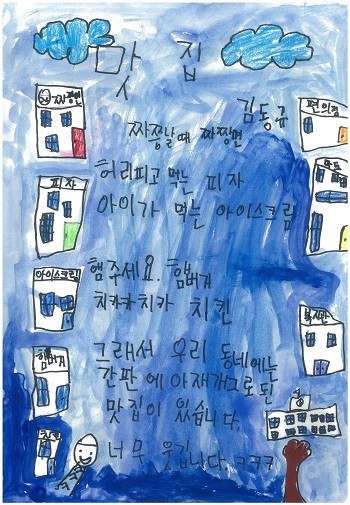 맛집
김동규
짜장면
편의점
짜쫑날때 짜장면
피자
마트
허리피고 먹는 피자
아이가 먹는 아이스크림
아이스크림
햄주세요. 햄버거
치카카치카 치킨
복사반
햄버거
그래서 우리 동네에는
간판에 아재개그로 된
맛집이 있습니다.
치킨
너무 웃깁니다 ㅋㅋㅋ